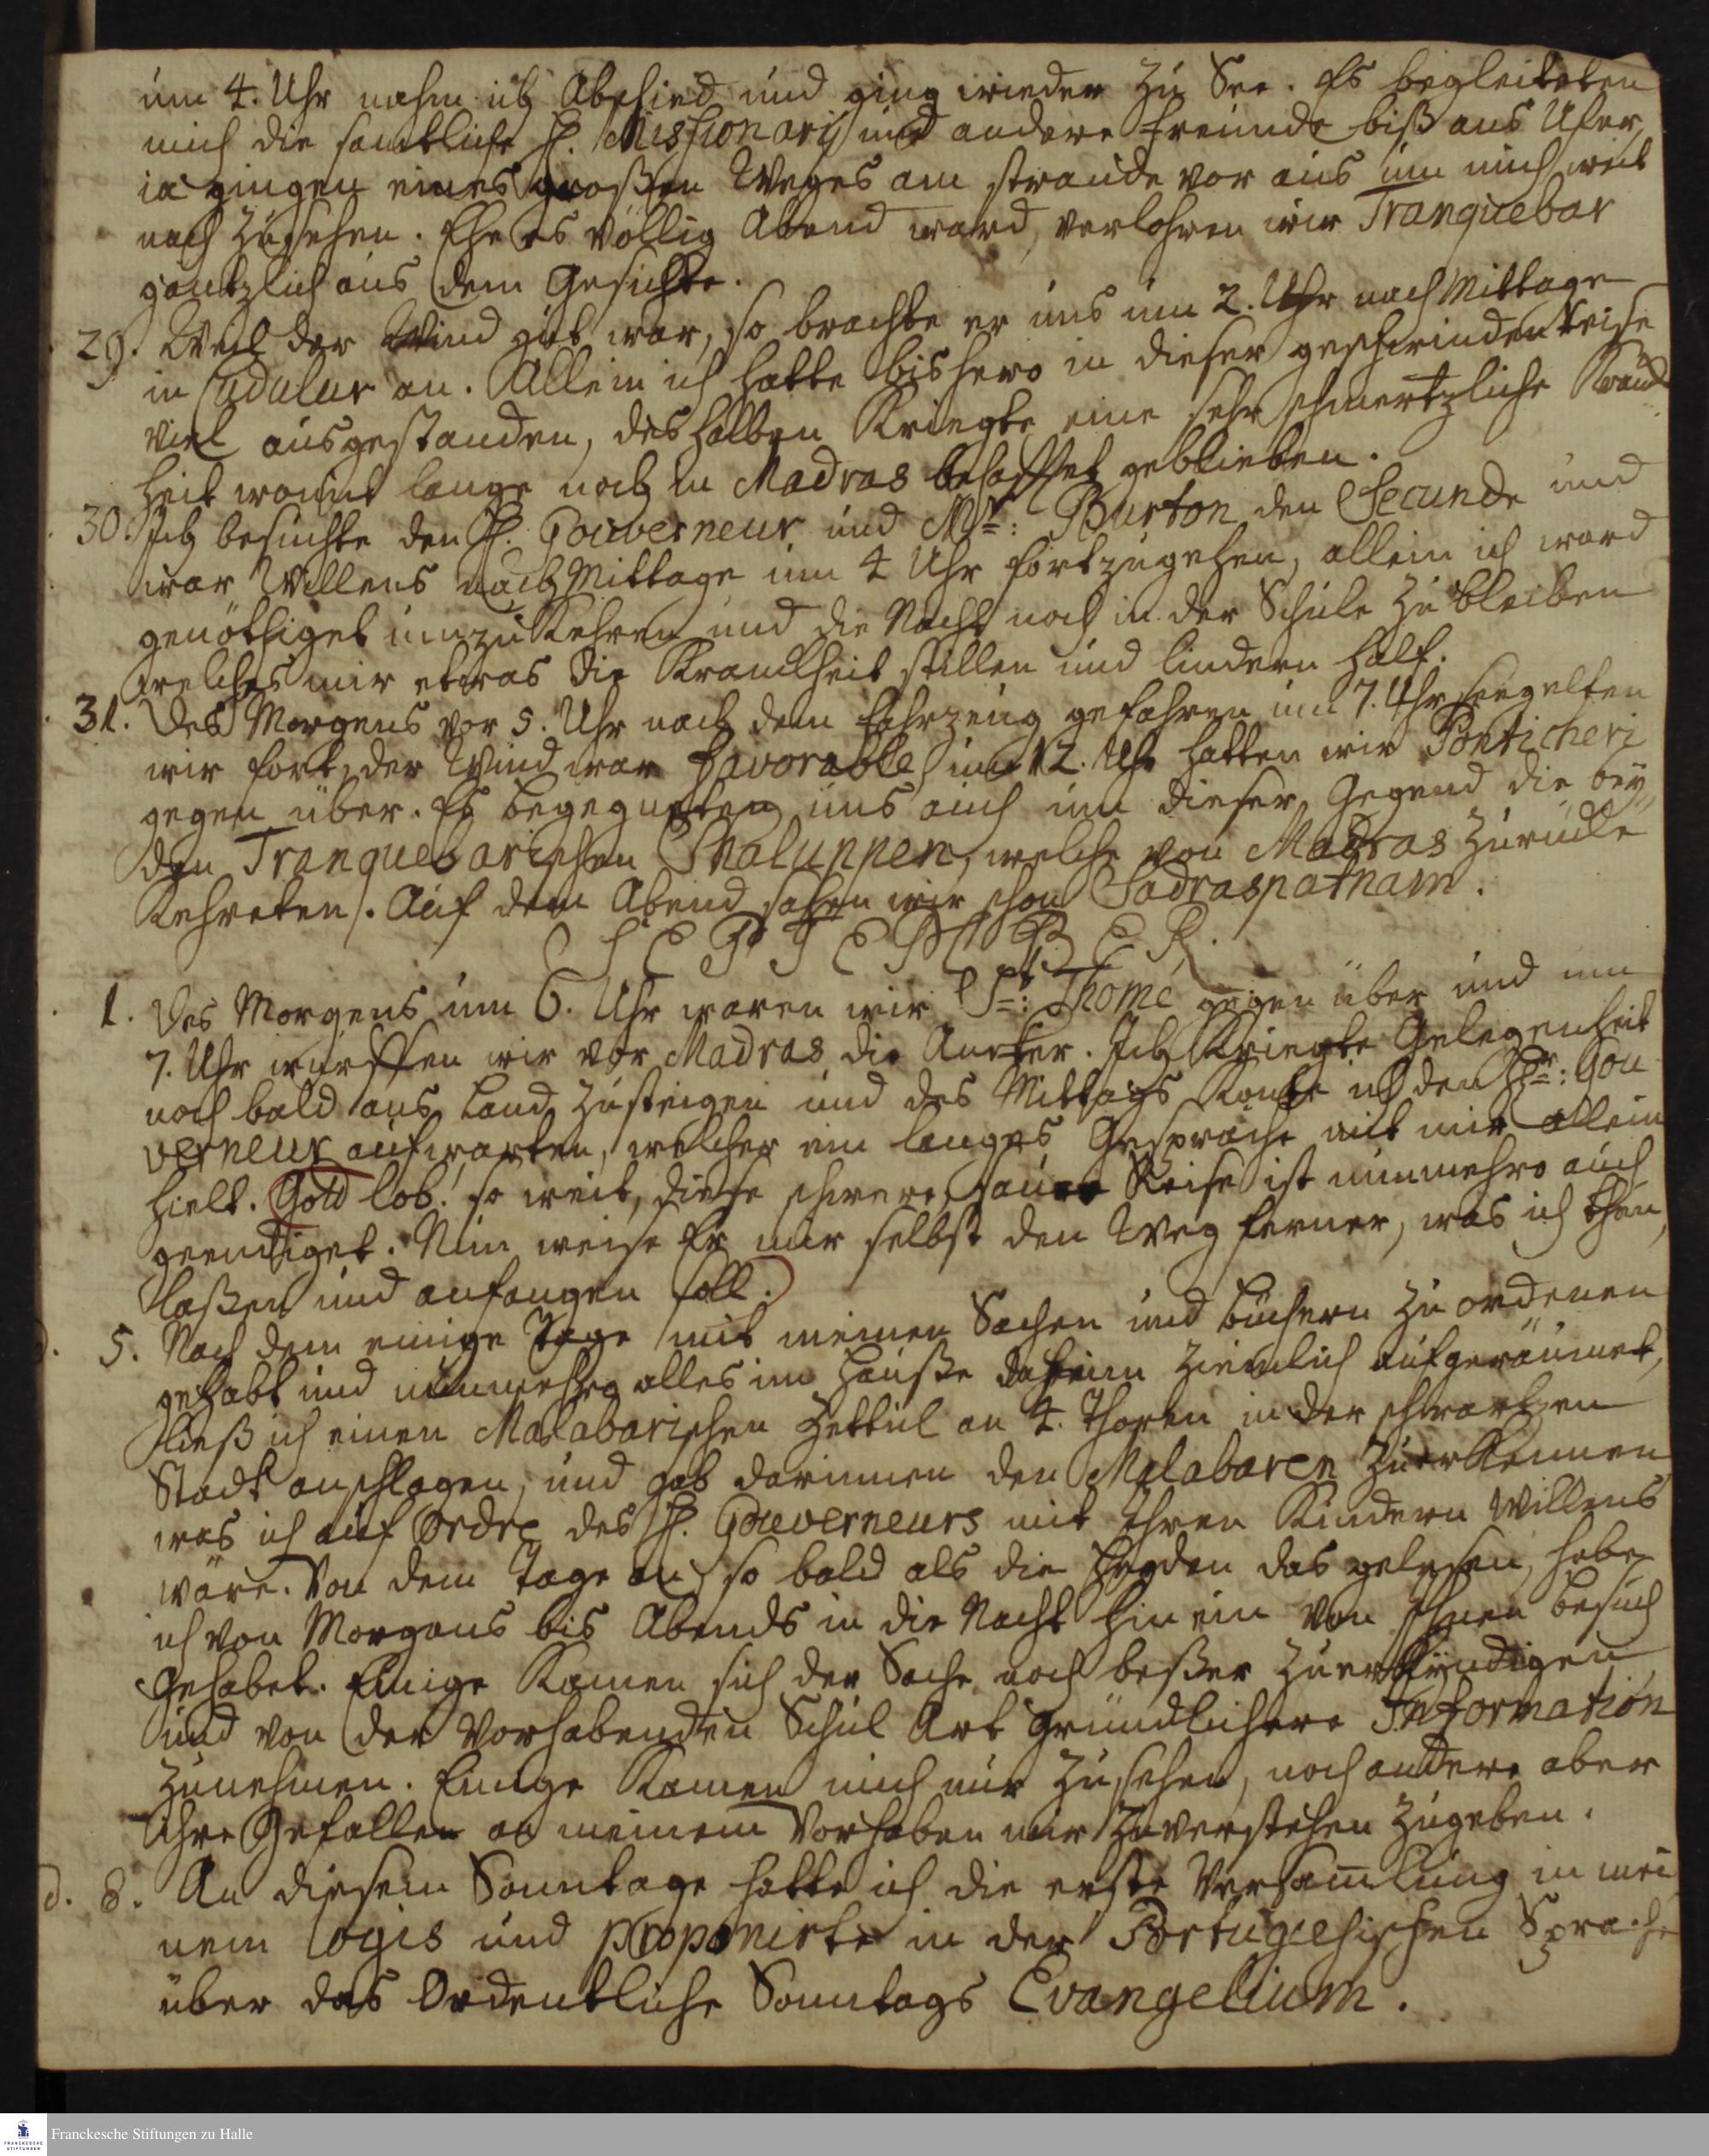 um 4. Uhr nahm ich Abschied und ging wieder zu See. Es begleiteten
mich die samtliche H. Missionarij und andere Freunde biß ans Ufer,
ia gingen eines großen Weges am strande vor aus um mich weit
nach zusehen. Ehe es völlig Abend ward, verlohren wir Tranquebar
gäntzlich aus dem Gesichte.
29. Weil der Wind gut war, so brachte er uns um 2. Uhr nach Mittage
in Cudulur an. Allein ich hatte bishero in dieser geschwinden Reise
viel ausgestanden, deshalben Kriegte eine sehr schmertzliche Kranck
heit womit lange noch in Madras behafftet geblieben.
30. Ich besuchte den H. Gouverneur und Mr: Burton den Secunde und
war Willens nach Mittage um 4 Uhr fortzugehen, allein ich ward
genöthiget umzukehren und die Nacht noch in der Schule zu bleiben
welches mir etwas die Kranckheit stillen und lindern half.
31. Des Morgens vor 5. Uhr nach dem Fahrzeug gefahren um 7. Uhr seegelten
wir fort, der Wind war favorable, um 12. Uhr hatten wir Ponticheri
gegen über. Es begegneten uns auch um dieser Gegend die bey
den Tranquebarischen Chaluppen, welche von Madras zurück
Kehreten. Auf dem Abend sahen wir schon Sadraspatnam.
SEPTEMBER.
1. Des Morgens um 6. Uhr waren wir St: Thomé gegen über und um
7. Uhr wurffen wir vor Madras die Ancker. Ich Kriegte Gelegenheit
noch bald ans Land zusteigen und des Mittags Konte ich den Hr: Gou
verneur aufwarten, welcher ein langes Gespräche mit mir allein
hielt. Gott lob! so weit, diese schwere saure Reise ist nunmehro auch
geendiget. Nun weise Er mir selbst den Weg ferner, was ich thun,
laßen und anfangen soll.
d. 5. Nach dem einige Tage mit meinen Sachen und Büchern zu ordenen
gehabt und nunmehro alles im Hauße daheim ziemlich aufgeräumet,
ließ ich einen Malabarischen Zettul an 4. Thoren in der schwartzen
Stadt anschlagen, und gab darinnen den Malabaren zuerkennen
was ich auf Ordre des H. Gouverneurs mit Ihren Kindern Willens
wäre. Von dem Tage an, so bald als die Heyden das gelesen, habe
ich von Morgens bis Abends in die Nacht hinein von Ihnen besuch
gehabet. Einige Kamen sich der Sache noch beßer zuerkündigen
und von der vorhabenden Schul Art gründlichere Information
zunehmen. Einige Kamen mich nur zusehen, noch andere aber
ihre Gefallen an meinem Vorhaben mir zuverstehen zugeben.
d. 8. An diesem Sonntage hatte ich die erste Versamlung in mei
nem Logis und proponirte in der Portugiesischen Sprache
über das Ordentliche Sonntags Evangelium.
Franckesche Stiftungen zu Halle